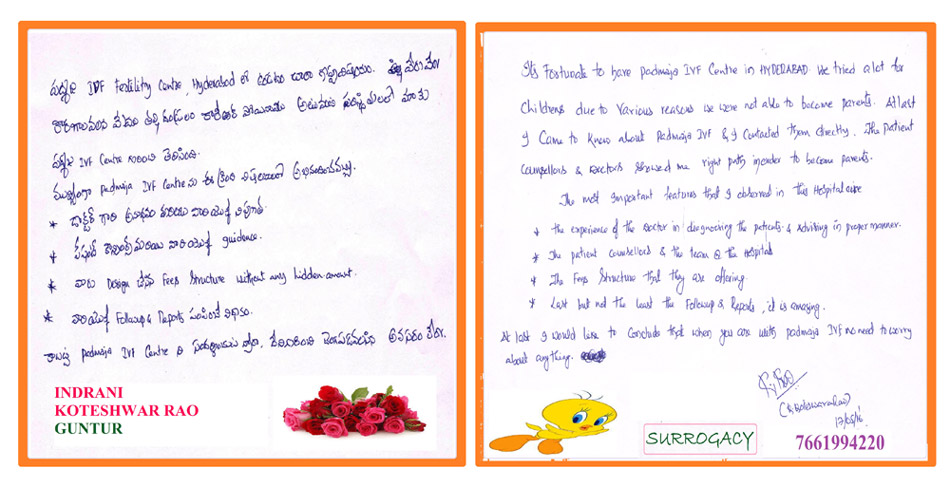 పద్మజ IVF Fertility Centre, Hyderabad లో ఉండటం చాలా గొప్ప విషయం.
పద్మజ IVF Centre గురించి తెలిసింది.
ముఖ్యంగా Padmaja IVF Centre ను ఈ క్రింది విషయాలలో అభినందించవచ్చు.
* డాక్టర్ గారి అనుభవం మరియు వారి యొక్క
* పేషెంట్ కౌన్సిలర్స్ మరియు వారి యొక్క guidence.
* వారు Design చేసిన Fees Structure without any hidden amount.
* వారి యొక్క Followup & Reports పంపించే విధానం.
కాబట్టి Padmaja IVF Centre ని
INDRANI
KOTESHWAR RAO
GUNTUR
Its Fortunate to have padmaja IVF Centre in HYDERABAD. We tried a lot for
childrens due to various reasons we were not able to become parents. At last
I Came to know about Padmaja IVF & I contacted them directly. The patient
Counsellors & Doctors showed me right path inorder to become parents.
The most important features that I observed in this Hospital are
* the experience of the Doctor in diagnosing the patients & advising in proper manner.
* The patient counsellors & the team @ the Hospital
* The Fees Structure that they are offering.
* Last but not the least the Followup & Reports, it is amazing.
At last I would like to conclude that when you are with padmaja IVF no need to worry
about anything.
17/05/16
SURROGACY
7661994220